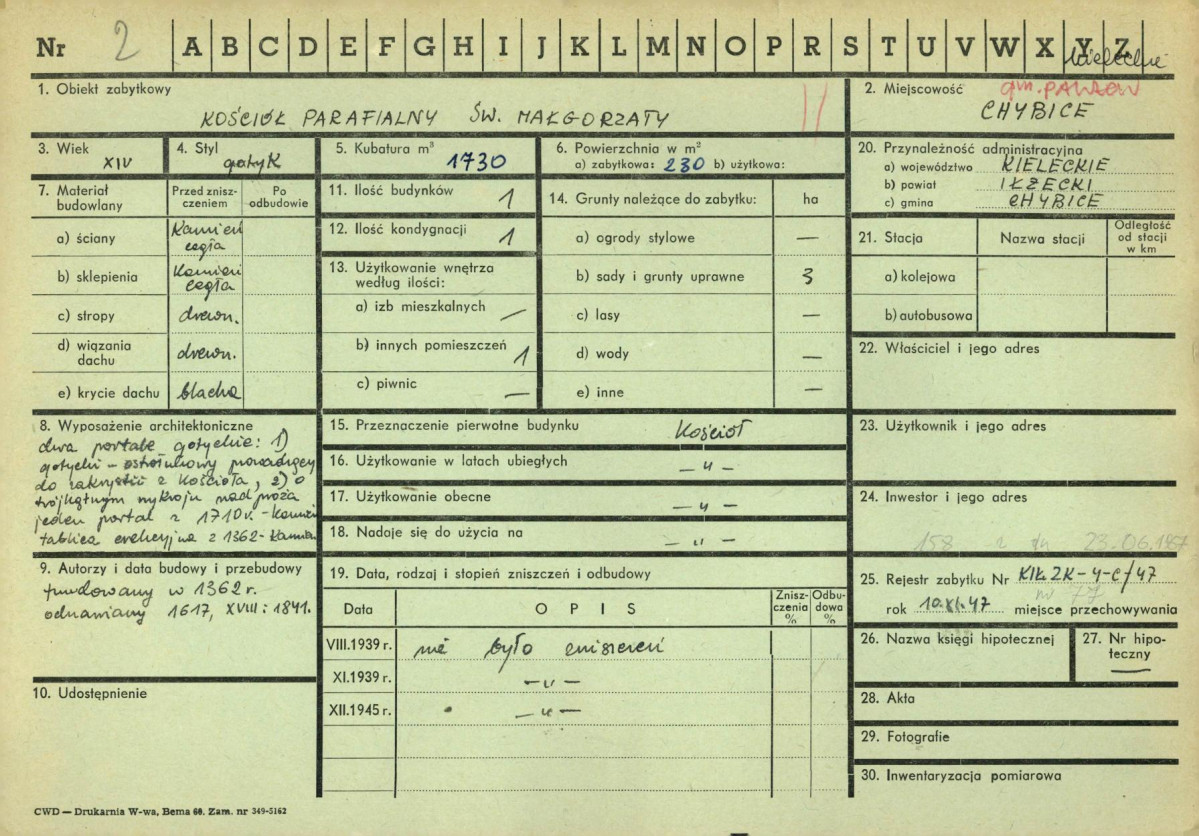 Nr 2 A B C D E F G H I J K L M N O P R S T U V W X Y Z
kieleckie
1. Obiekt zabytkowy
KOŚCIÓŁ PARAFIALNY ŚW. MAŁGORZATY
II
2. Miejscowość
gm. PAWŁÓW
CHYBICE
3. Wiek
XIV
4. Styl
gotyk
5. Kubatura m³
1730
6. Powierzchnia w m²
a) zabytkowa: 230 b) użytkowa:
20. Przynależność administracyjna
a) województwo KIELECKIE
b) powiat IŁŻECKI
c) gmina CHYBICE
7. Materiał budowlany
Przed zniszczeniem
Po odbudowie
a) ściany
Kamień
cegła
b) sklepienia
Kamień
cegła
c) stropy drewn.
d) wiązania dachu
drewn.
e) krycie dachu blacha
11. Ilość budynków 1
12. Ilość kondygnacji 1
13. Użytkowanie wnętrza
według ilości:
a) izb mieszkalnych —
b) innych pomieszczeń 1
c) piwnic —
14. Grunty należące do zabytku: ha
a) ogrody stylowe —
b) sady i grunty uprawne 3
c) lasy —
d) wody —
e) inne —
21. Stacja
Nazwa stacji
Odległość
od stacji
w km
a) kolejowa
b) autobusowa
22. Właściciel i jego adres
8. Wyposażenie architektoniczne
dwa portale gotyckie: 1)
gotycki – ostrołukowy prowadzący
do zakrystii z Kościoła, 2) o
trójkątnym wykroju nadproża
jeden portal z 1710 r. – Kamień
tablica erekcyjna z 1362 – Kamień
9. Autorzy i data budowy i przebudowy
fundowany w 1362 r.
odnawiany 1617, XVIII i 1841.
10. Udostępnienie
15. Przeznaczenie pierwotne budynku Kościół
16. Użytkowanie w latach ubiegłych – „ –
17. Użytkowanie obecne – „ –
18. Nadaje się do użycia na – „ –
19. Data, rodzaj i stopień zniszczeń i odbudowy
Data
OPIS
Zniszczenia
%
Odbudowa
%
VIII.1939 r. nie było zniszczeń
XI.1939 r. – „ –
XII.1945 r. – „ –
23. Użytkownik i jego adres
24. Inwestor i jego adres
158 z dn 23.06.1967
25. Rejestr zabytku Nr KIŁ.ZK-4-C/47
nr 77
rok 10.XI.47 miejsce przechowywania
26. Nazwa księgi hipotecznej
27. Nr hipoteczny
—
28. Akta
29. Fotografie
30. Inwentaryzacja pomiarowa
CWD — Drukarnia W-wa, Bema 68. Zam. nr 349-5162